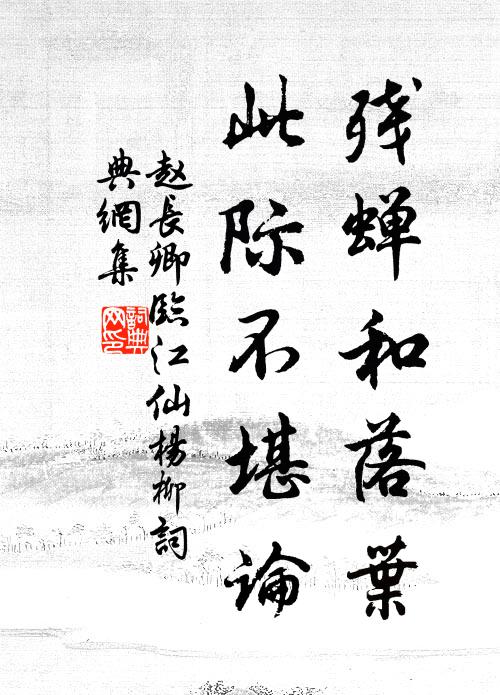 残蝉和落葉
此际不堪論
赵長卿臨江仙楊柳詞
典網集
詞典網印